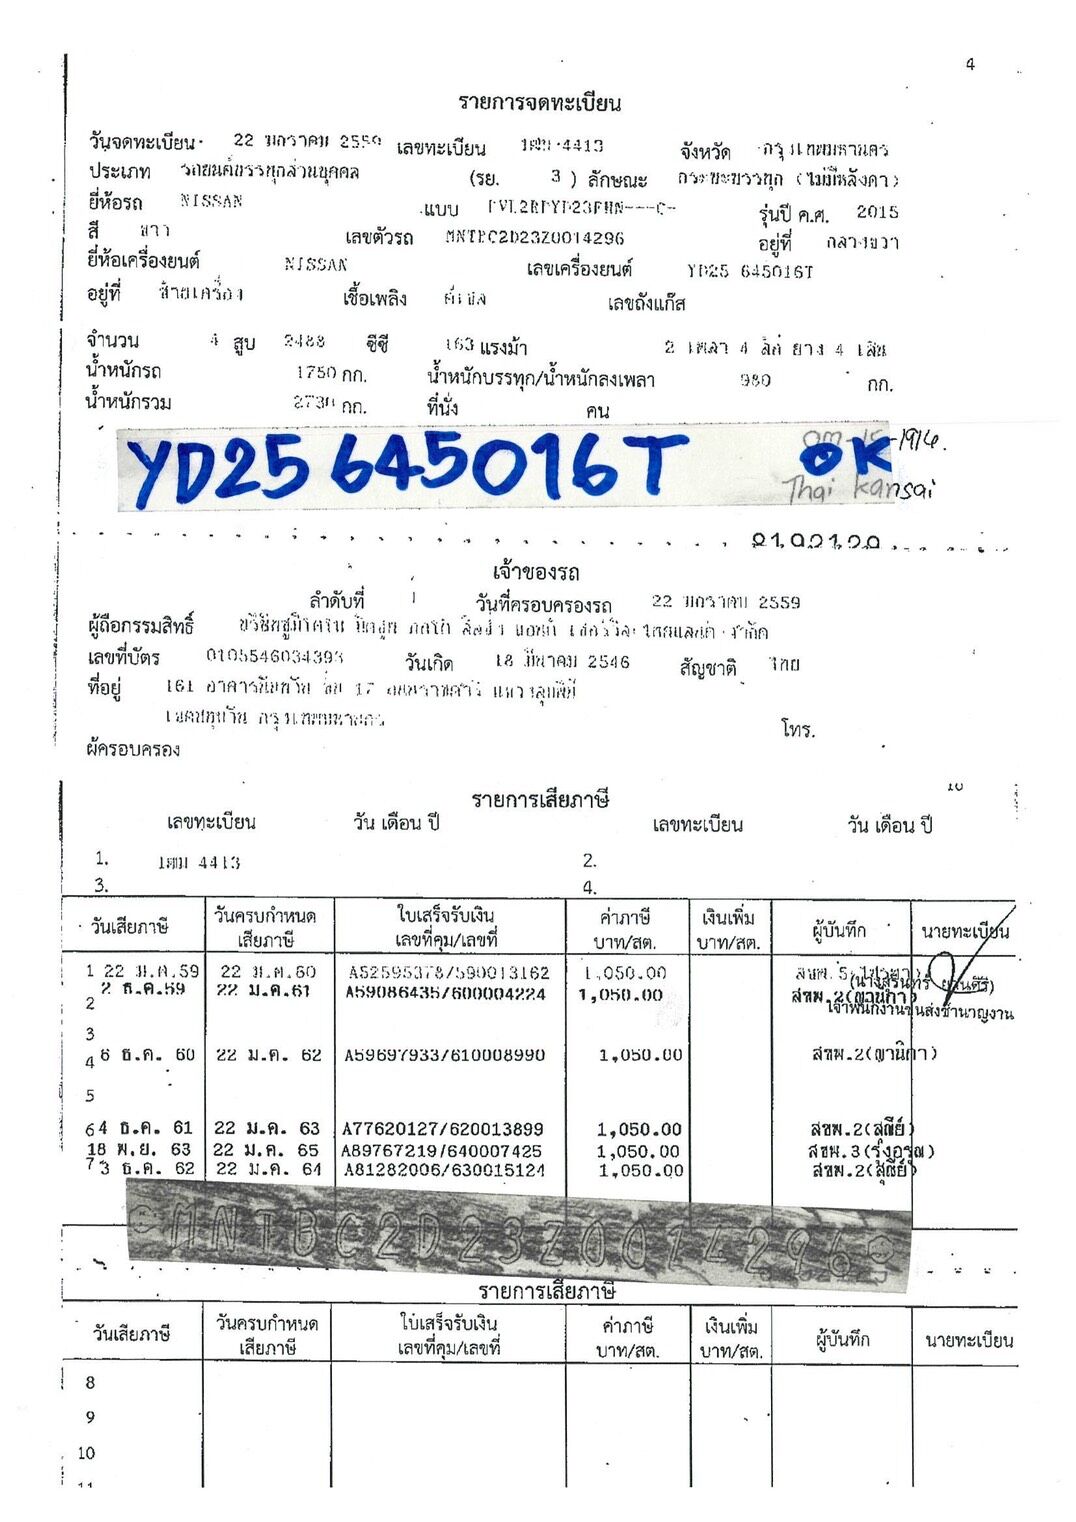 4
รายการจดทะเบียน
วันจดทะเบียน 22 มกราคม 2559 เลขทะเบียน 4413 จังหวัด กรุงเทพมหานคร
ประเภท รถยนต์บรรทุกส่วนบุคคล (รย. 3 ) ลักษณะ กระบะบรรทุก (ไม่มีหลังคา)
ยี่ห้อรถ NISSAN แบบ รุ่นปี ค.ศ. 2015
สี ขาว เลขตัวรถ MNTBC2D23Z0014296 อยู่ที่ กลางขวา
ยี่ห้อเครื่องยนต์ NISSAN เลขเครื่องยนต์ YD25 645016T
อยู่ที่ ซ้ายเครื่อง เชื้อเพลิง ดีเซล เลขถังแก๊ส
จำนวน 4 สูบ 2488 ซีซี 163 แรงม้า 2 เพลา 4 ล้อ ยาง 4 เส้น
น้ำหนักรถ 1750 กก. น้ำหนักบรรทุก/น้ำหนักลงเพลา 980 กก.
น้ำหนักรวม 2730 กก. ที่นั่ง คน
YD25 645016T OK
Thai Kansai
เจ้าของรถ
ลำดับที่ 1 วันที่ครอบครองรถ 22 มกราคม 2559
ผู้ถือกรรมสิทธิ์ จำกัด
เลขที่บัตร 0105546034393 วันเกิด 18 มีนาคม 2546 สัญชาติ ไทย
ที่อยู่ 161 อาคาร 17
เขตปทุมวัน กรุงเทพมหานคร โทร.
ผู้ครอบครอง
รายการเสียภาษี
เลขทะเบียน วัน เดือน ปี เลขทะเบียน วัน เดือน ปี
1. 4413 2.
3. 4.
วันเสียภาษี วันครบกำหนดเสียภาษี ใบเสร็จรับเงิน เลขที่คุม/เลขที่ ค่าภาษี บาท/สต. เงินเพิ่ม บาท/สต. ผู้บันทึก นายทะเบียน
1 22 ม.ค.59 22 ม.ค.60 A52595378/590013162 1,050.00
2 ธ.ค.59 22 ม.ค.61 A59086435/600004224 1,050.00 สขพ.2(ญานิกา)
2 เจ้าพนักงานขนส่งชำนาญงาน
3
4 6 ธ.ค. 60 22 ม.ค. 62 A59697933/610008990 1,050.00 สขพ.2(ญานิกา)
5
6 4 ธ.ค. 61 22 ม.ค. 63 A77620127/620013899 1,050.00 สขพ.2(สุณีย์)
18 พ.ย. 63 22 ม.ค. 65 A89767219/640007425 1,050.00 สขพ.3(รุ่งอรุณ)
7 3 ธ.ค. 62 22 ม.ค. 64 A81282006/630015124 1,050.00 สขพ.2(สุณีย์)
MNTBC2D23Z0014296
รายการเสียภาษี
วันเสียภาษี วันครบกำหนดเสียภาษี ใบเสร็จรับเงิน เลขที่คุม/เลขที่ ค่าภาษี บาท/สต. เงินเพิ่ม บาท/สต. ผู้บันทึก นายทะเบียน
8
9
10
11